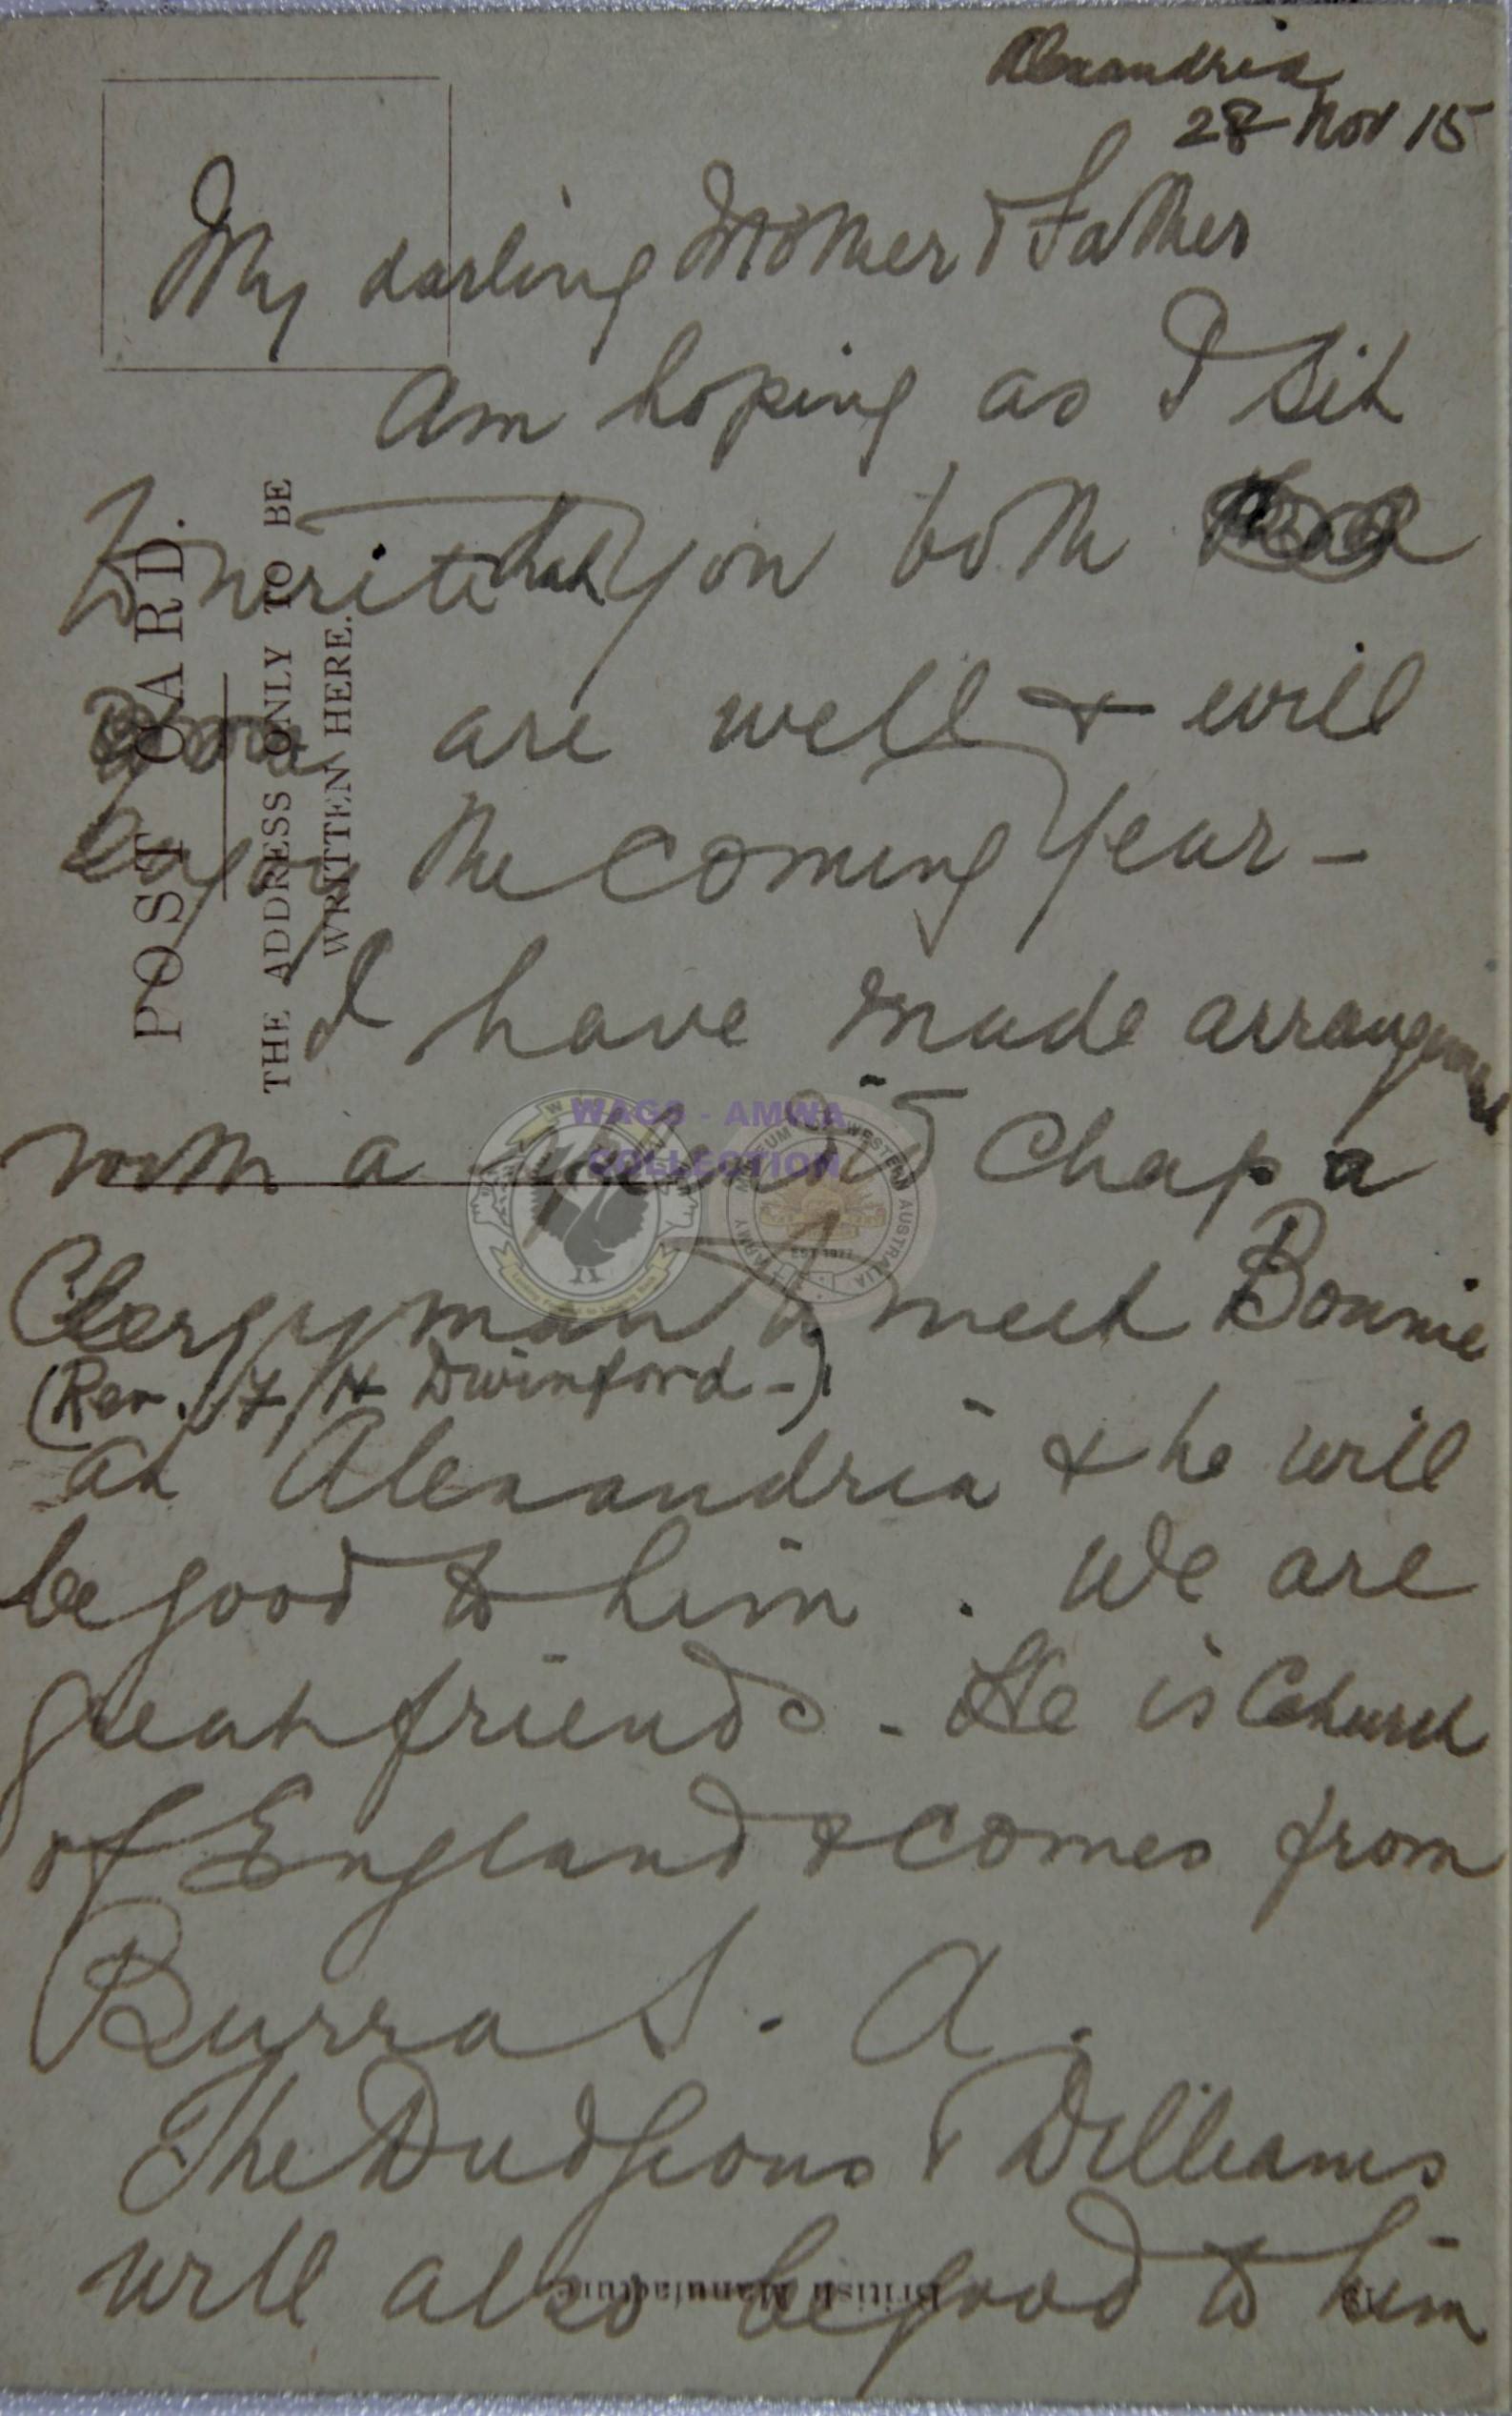 Alexandria
28 Nov 15
My darling Mother & Father
am hoping as I sit
to write that you both
are well & will
enjoy the coming year -
I have made arrangement
with a splendid Chap a
Clergyman to meet Bonnie
(Rev. F H Dwinford -)
at Alexandria & he will
be good to him . We are
great friends - He is Church
of England & comes from
Burra S. A.
The Dudgeons & Williams
will also be good to him
POST CARD.
THE ADDRESS ONLY TO BE
WRITTEN HERE.
British Manufacture
WAGS - AMWA
COLLECTION
ARMY MUSEUM OF WESTERN AUSTRALIA
EST 1977